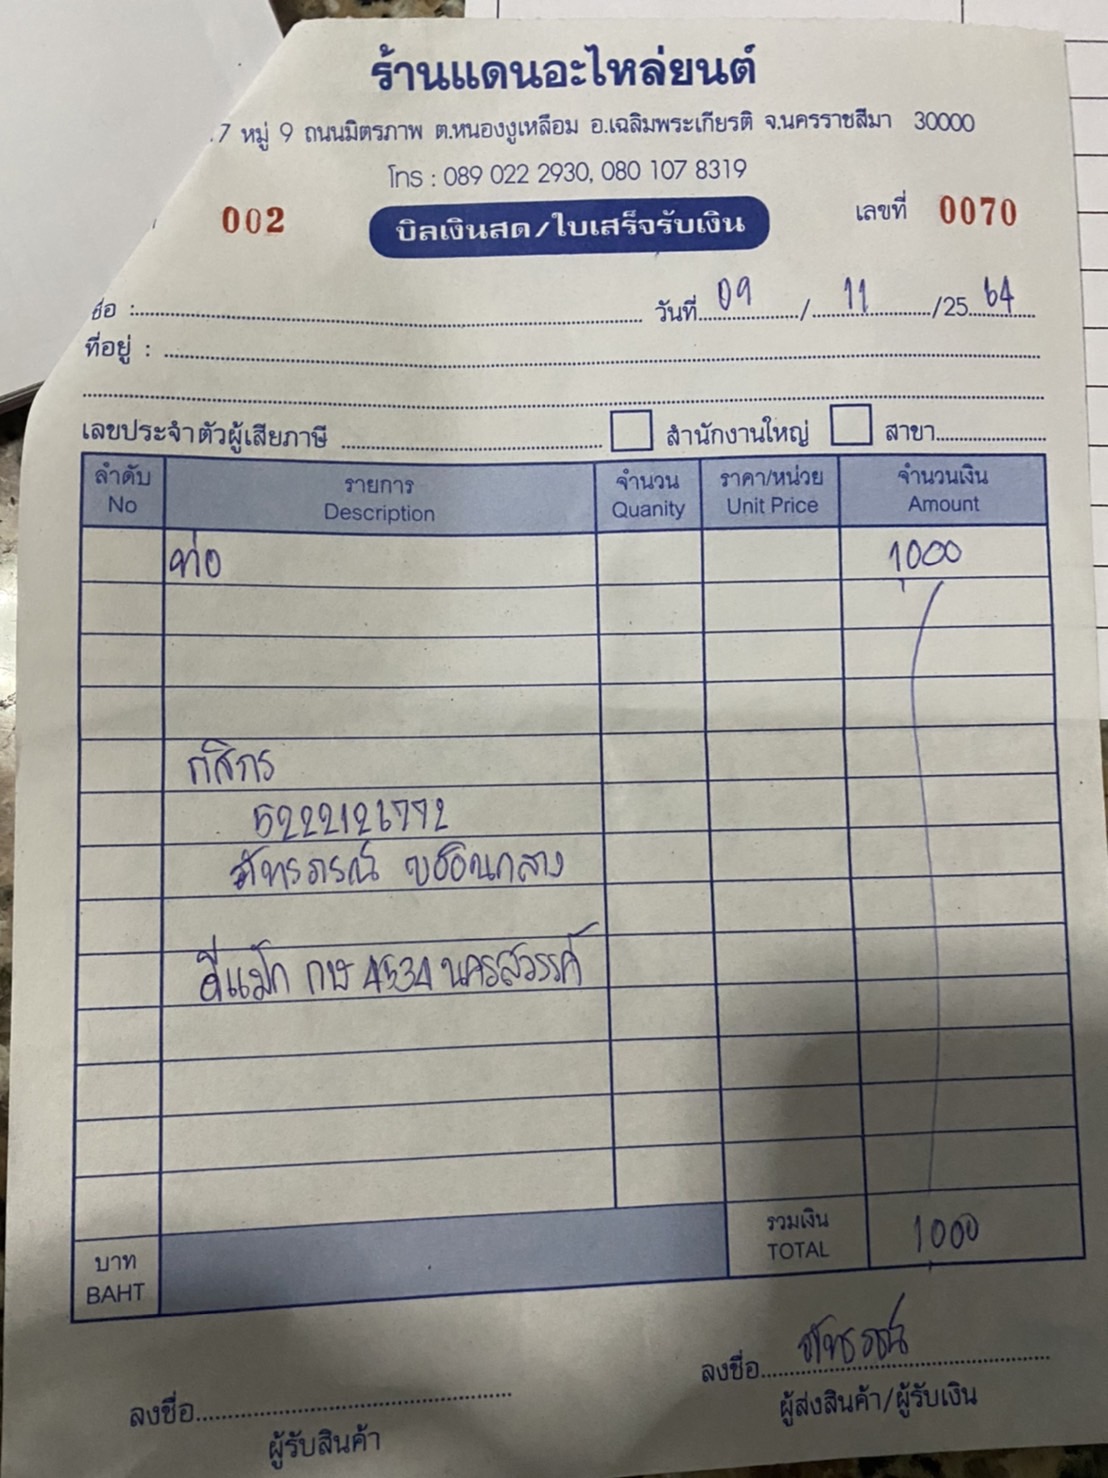 ร้านแดนอะไหล่ยนต์
.7 หมู่ 9 ถนนมิตรภาพ ต.หนองงูเหลือม อ.เฉลิมพระเกียรติ จ.นครราชสีมา 30000
โทร : 089 022 2930, 080 107 8319
002 บิลเงินสด/ใบเสร็จรับเงิน เลขที่ 0070
ชื่อ : วันที่ 09 / 11 /25 64
ที่อยู่ :
เลขประจำตัวผู้เสียภาษี สำนักงานใหญ่ สาขา
ลำดับ รายการ จำนวน ราคา/หน่วย จำนวนเงิน
No Description Quanity Unit Price Amount
ท่อ 1000
กสิกร
5222126772
ภัทรภรณ์
ดีแม็ก กษ 4534 นครสวรรค์
รวมเงิน
TOTAL 1000
บาท
BAHT
ลงชื่อ ลงชื่อ
ผู้รับสินค้า ผู้ส่งสินค้า/ผู้รับเงิน